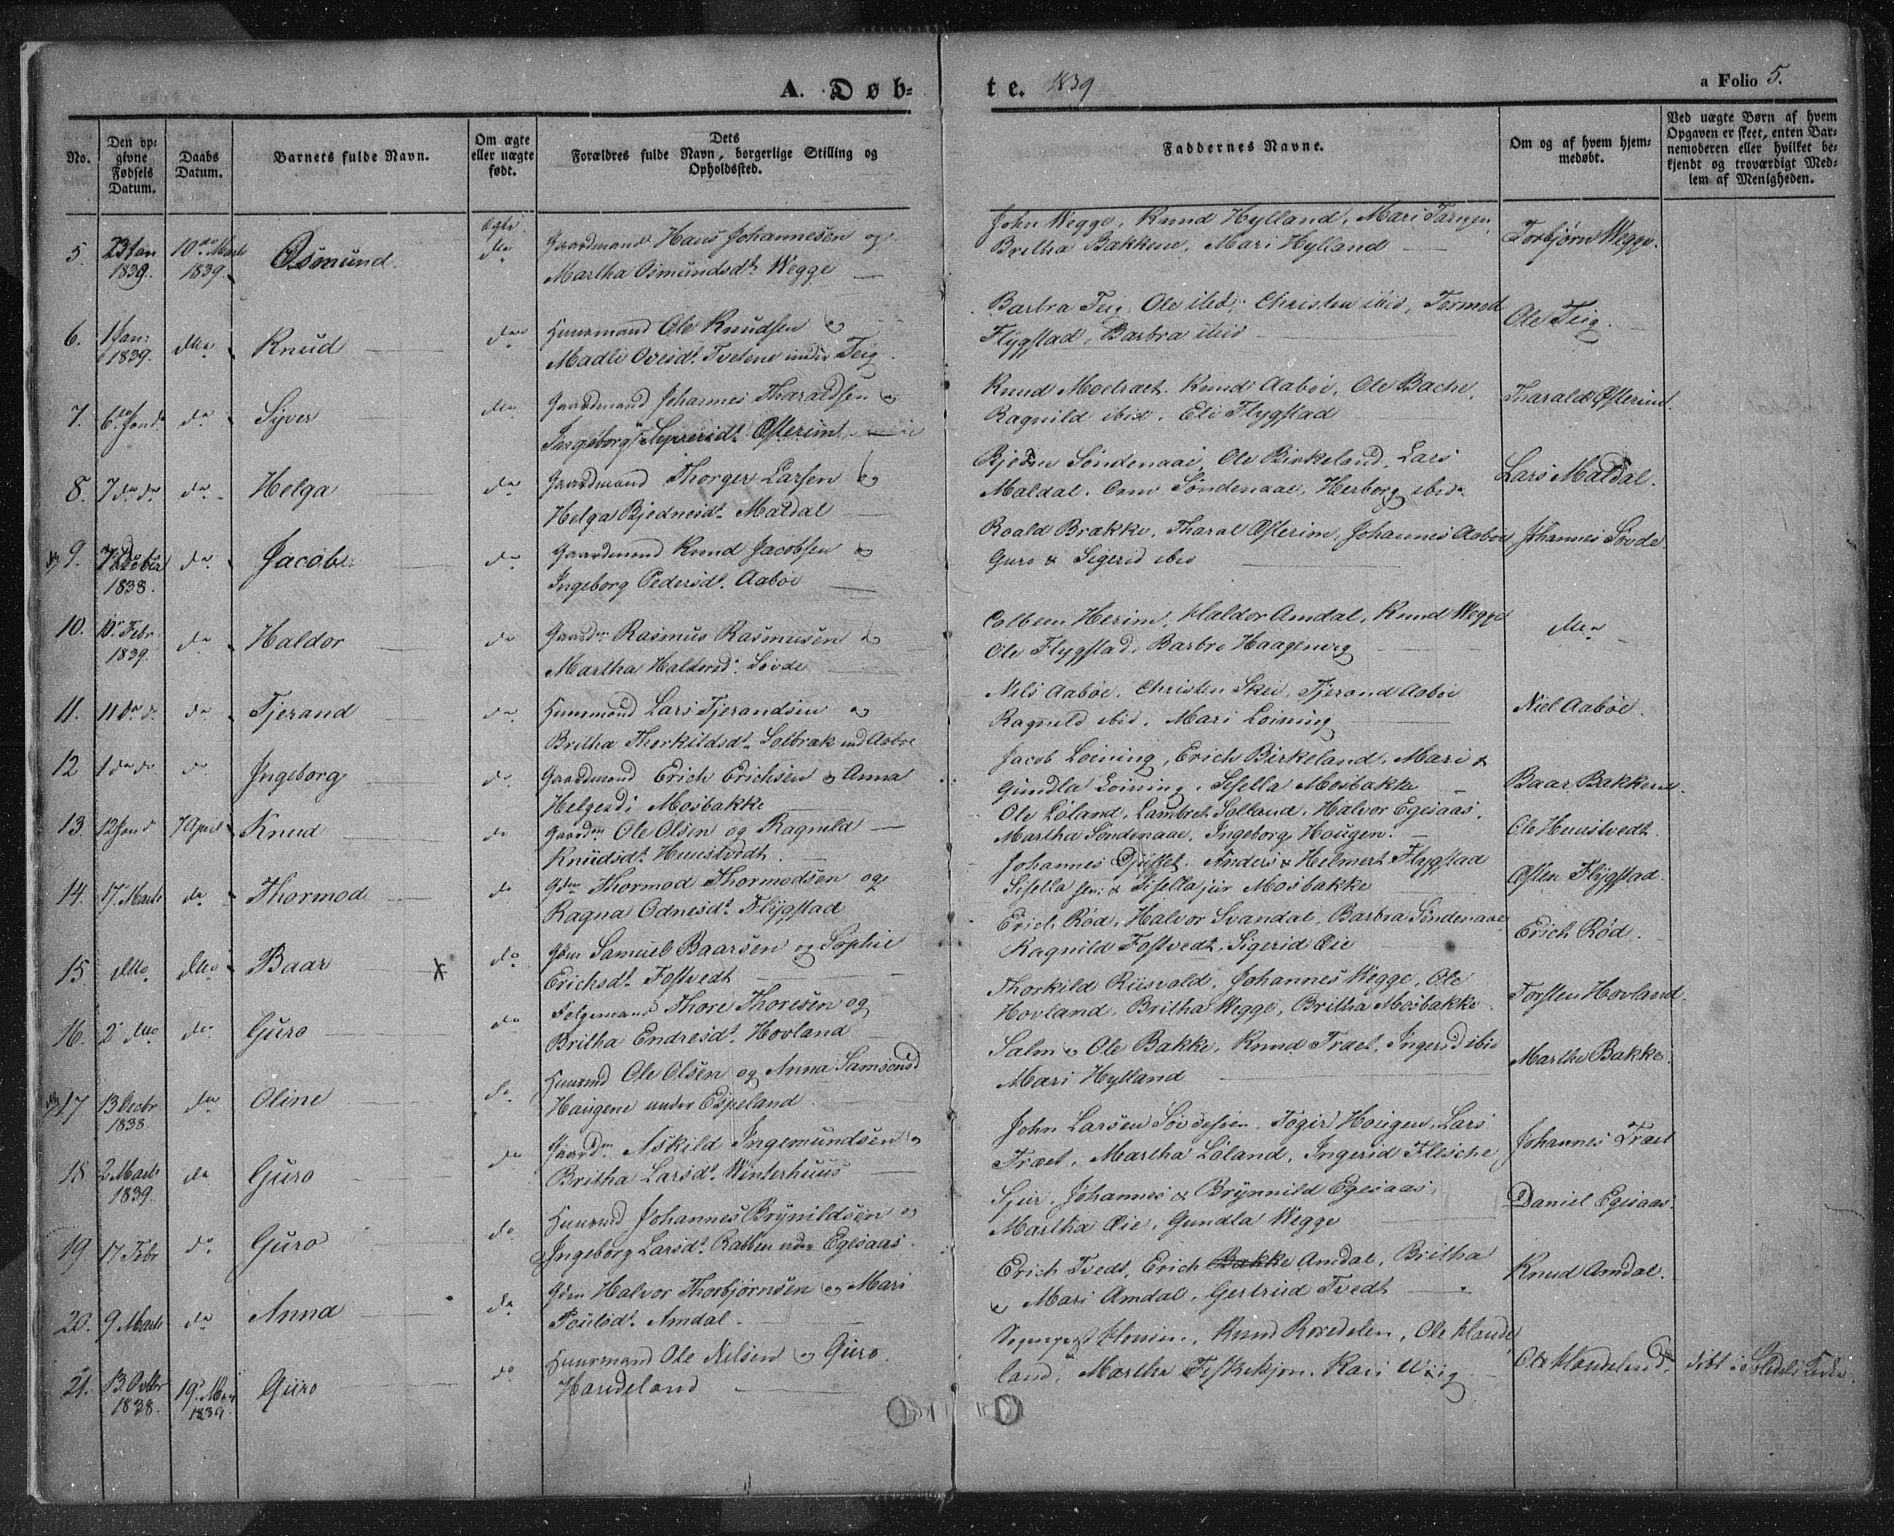 A. Døb-
te. 1839
a Folio 5.
No.
Den op-
givne
Fødsels
Datum.
Daabs
Datum.
Barnets fulde Navn.
Om ægte
eller uægte
født.
Dets
Forældres fulde Navn, borgerlige Stilling og
Opholdssted.
Faddernes Navne.
Om og af hvem hjem-
medøbt.
Ved uægte Børn af hvem
Opgaven er skeet, enten Bar-
nemoderen eller hvilket be-
kjendt og troværdigt Med-
lem af Menigheden.
5. 23 Jan 1839. 10de Marts 1839. Osmund Ægte do
Gaardmand Hans Johannesen og
Martha Osmundsdt Wegge
John Wegge, Knud Hylland, Mari
Britha Bakkene, Mari Hylland
Torbjørn Wegge.
6. 1 Jan: 1839. dto Knud do
Huusmand Ole Knudsen &
Madli Ovesdt Tvetene under Teig.
Barbra Teig, Ole ibid, Christen ibid, Tormod
Flygstad, Barbra ibid
Ole Teig.
7. 6te Jan do. do Syver do
Gaardmand Johannes Tharaldsen &
Ingeborg Syversdt Østerim
Knud Moetraet, Knud Aabøe, Ole Bache,
Ragnild ibid, Eli Flygstad
Tharald Østerim.
8. 7 do do do Helga do
Gaardmand Thorger Larsen og
Helga Bjednesdt Maldal
Bjedne Søndenaae, Ole Birkeland, Lars
Maldal, Søndenaae, Herborg ibid
Lars Maldal.
9. 1838. do Jacob do
Gaardmand Knud Jacobsen &
Ingeborg Pedersdt Aabøe
Roald Brække, Tharal Østerim, Johannes Aabøe
Guro & Sigerid ibid
Johannes Søvde.
10. 10 Febr 1839. do Haldor do
Gaardm Rasmus Rasmusen &
Martha Haldorsdt Søvde
Colbein Herim, Haldor Amdal, Knud Wegge
Ole Flygstad, Barbro
dto
11. 11 do do do Tjerand do
Huusmand Lars Tjerandsen &
Britha Thorkildsdt Solbræk und Aabøe
Nils Aabøe, Christen Skei, Tjerand Aabøe
Ragnild ibid, Mari Løining
Niel Aabøe.
12 1 do do. do Ingeborg do
Gaardmand Erich Erichsen & Anna
Helgesdt Mosbakke
Jacob Løining, Erich Birkeland, Mari &
Gundla Løining, Sisella Mosbakke
Baar Bakkene
13. 12 Jan do 7 April Knud do
Gaardm Ole Olsen og Ragnild
Knudsdt Huustvedt.
Ole Løland, Lambrect Solland, Halvor Egesaas,
Martha Søndenaae, Ingeborg Hougen.
Ole Huustvedt.
14. 17 Marts do Thormod do
Gdm Thormod Thormodsen og
Ragna Odnesdt Flygstad
Johannes, Anders & Helmert Flygstad
Sisella sen: & Sisella jur Mosbakke
Østen Flygstad.
15. dto. dto Baar x do
Gdm Samuel Baarsen og Sophie
Erichsdt Fostvedt
Erich Rød, Halvor Svandal, Barbra Søndenaae
Ragnild Fostvedt, Sigerid Øie
Erich Rød.
16. 2 dto do Guro do
Følgemand Thore Thoresen og
Britha Endresdt Hovland
Thorkild Riisvold, Johannes Wegge, Ole
Hovland, Britha Wegge, Britha Mosbakke
Torsten Hovland.
17 13 Decbr 1838 do Oline do
Huusmd Ole Olsen og Anna Samsonsd
Haugene under Espeland.
Salm & Ole Bakke, Knud Traet, Ingerid ibid
Mari Hylland
Marthe Bakke
18 2 Marts 1839. do Guro do
Gaardm Askild Ingemundsen &
Britha Larsdt Winterhuus
John Larsen, Togir Hougen, Lars
Træet, Martha Løland, Ingerid Flesche
Johannes Træet
19. 17 Febr do Guro do
Huusmd Johannes Brynildsen &
Ingeborg Larsdt Rabben under Egesaas
Sjur, Johannes & Brynnild Egesaas,
Martha Øie, Gundla Wegge
Daniel Egesaas.
20. 9 Marts do Anna do
Gdm Halvor Thorbjørnsen & Mari
Poulsdt Amdal.
Erich Tvedt, Erich Bakke Amdal, Britha
& Mari Amdal, Gertrud Tvedt
Knud Amdal.
21. 13 Octbr 1838. 19 Mai 1839. Guro do
Huusmand Ole Nilsen & Guro
Handeland
Knud Rosedalen, Ole Hande
land, Martha, Kari Wiig
Ole Handeland,